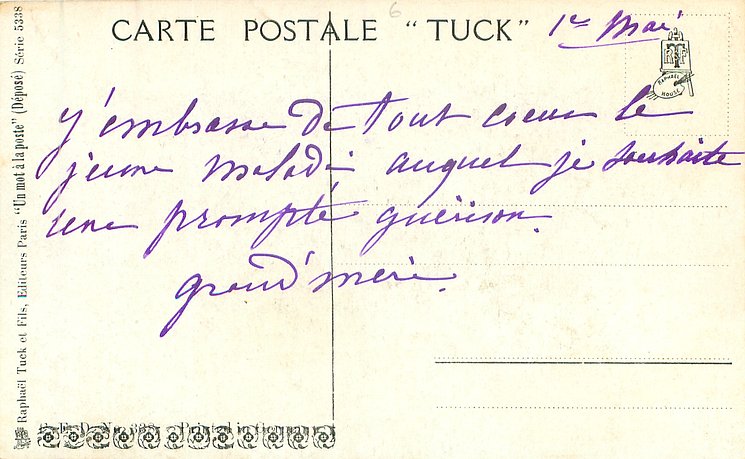 CARTE POSTALE “TUCK”
1er Mai
RAPHAEL
HOUSE
j'embrasse de tout coeur le
jeune malade auquel je souhaite
une prompte guérison.
grand'mère.
Raphaël Tuck et Fils, Editeurs Paris “Un mot à la poste” (Déposé) Série 5338
Printed in Germany
6